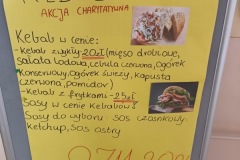 AKCJA CHARYTATYWNA
Kebab w cenie:
-Kebab zwykły-20zł (mięso drobiowe,
sałata lodowa, cebula czerwona, ogórek
konserwowy, Ogórek świeży, kapusta
czerwona, pomidor)
-Kebab z frytkami -25zł
Sosy w cenie kebabów!
Sosy do wyboru: sos czosnkowy,
ketchup, sos ostry